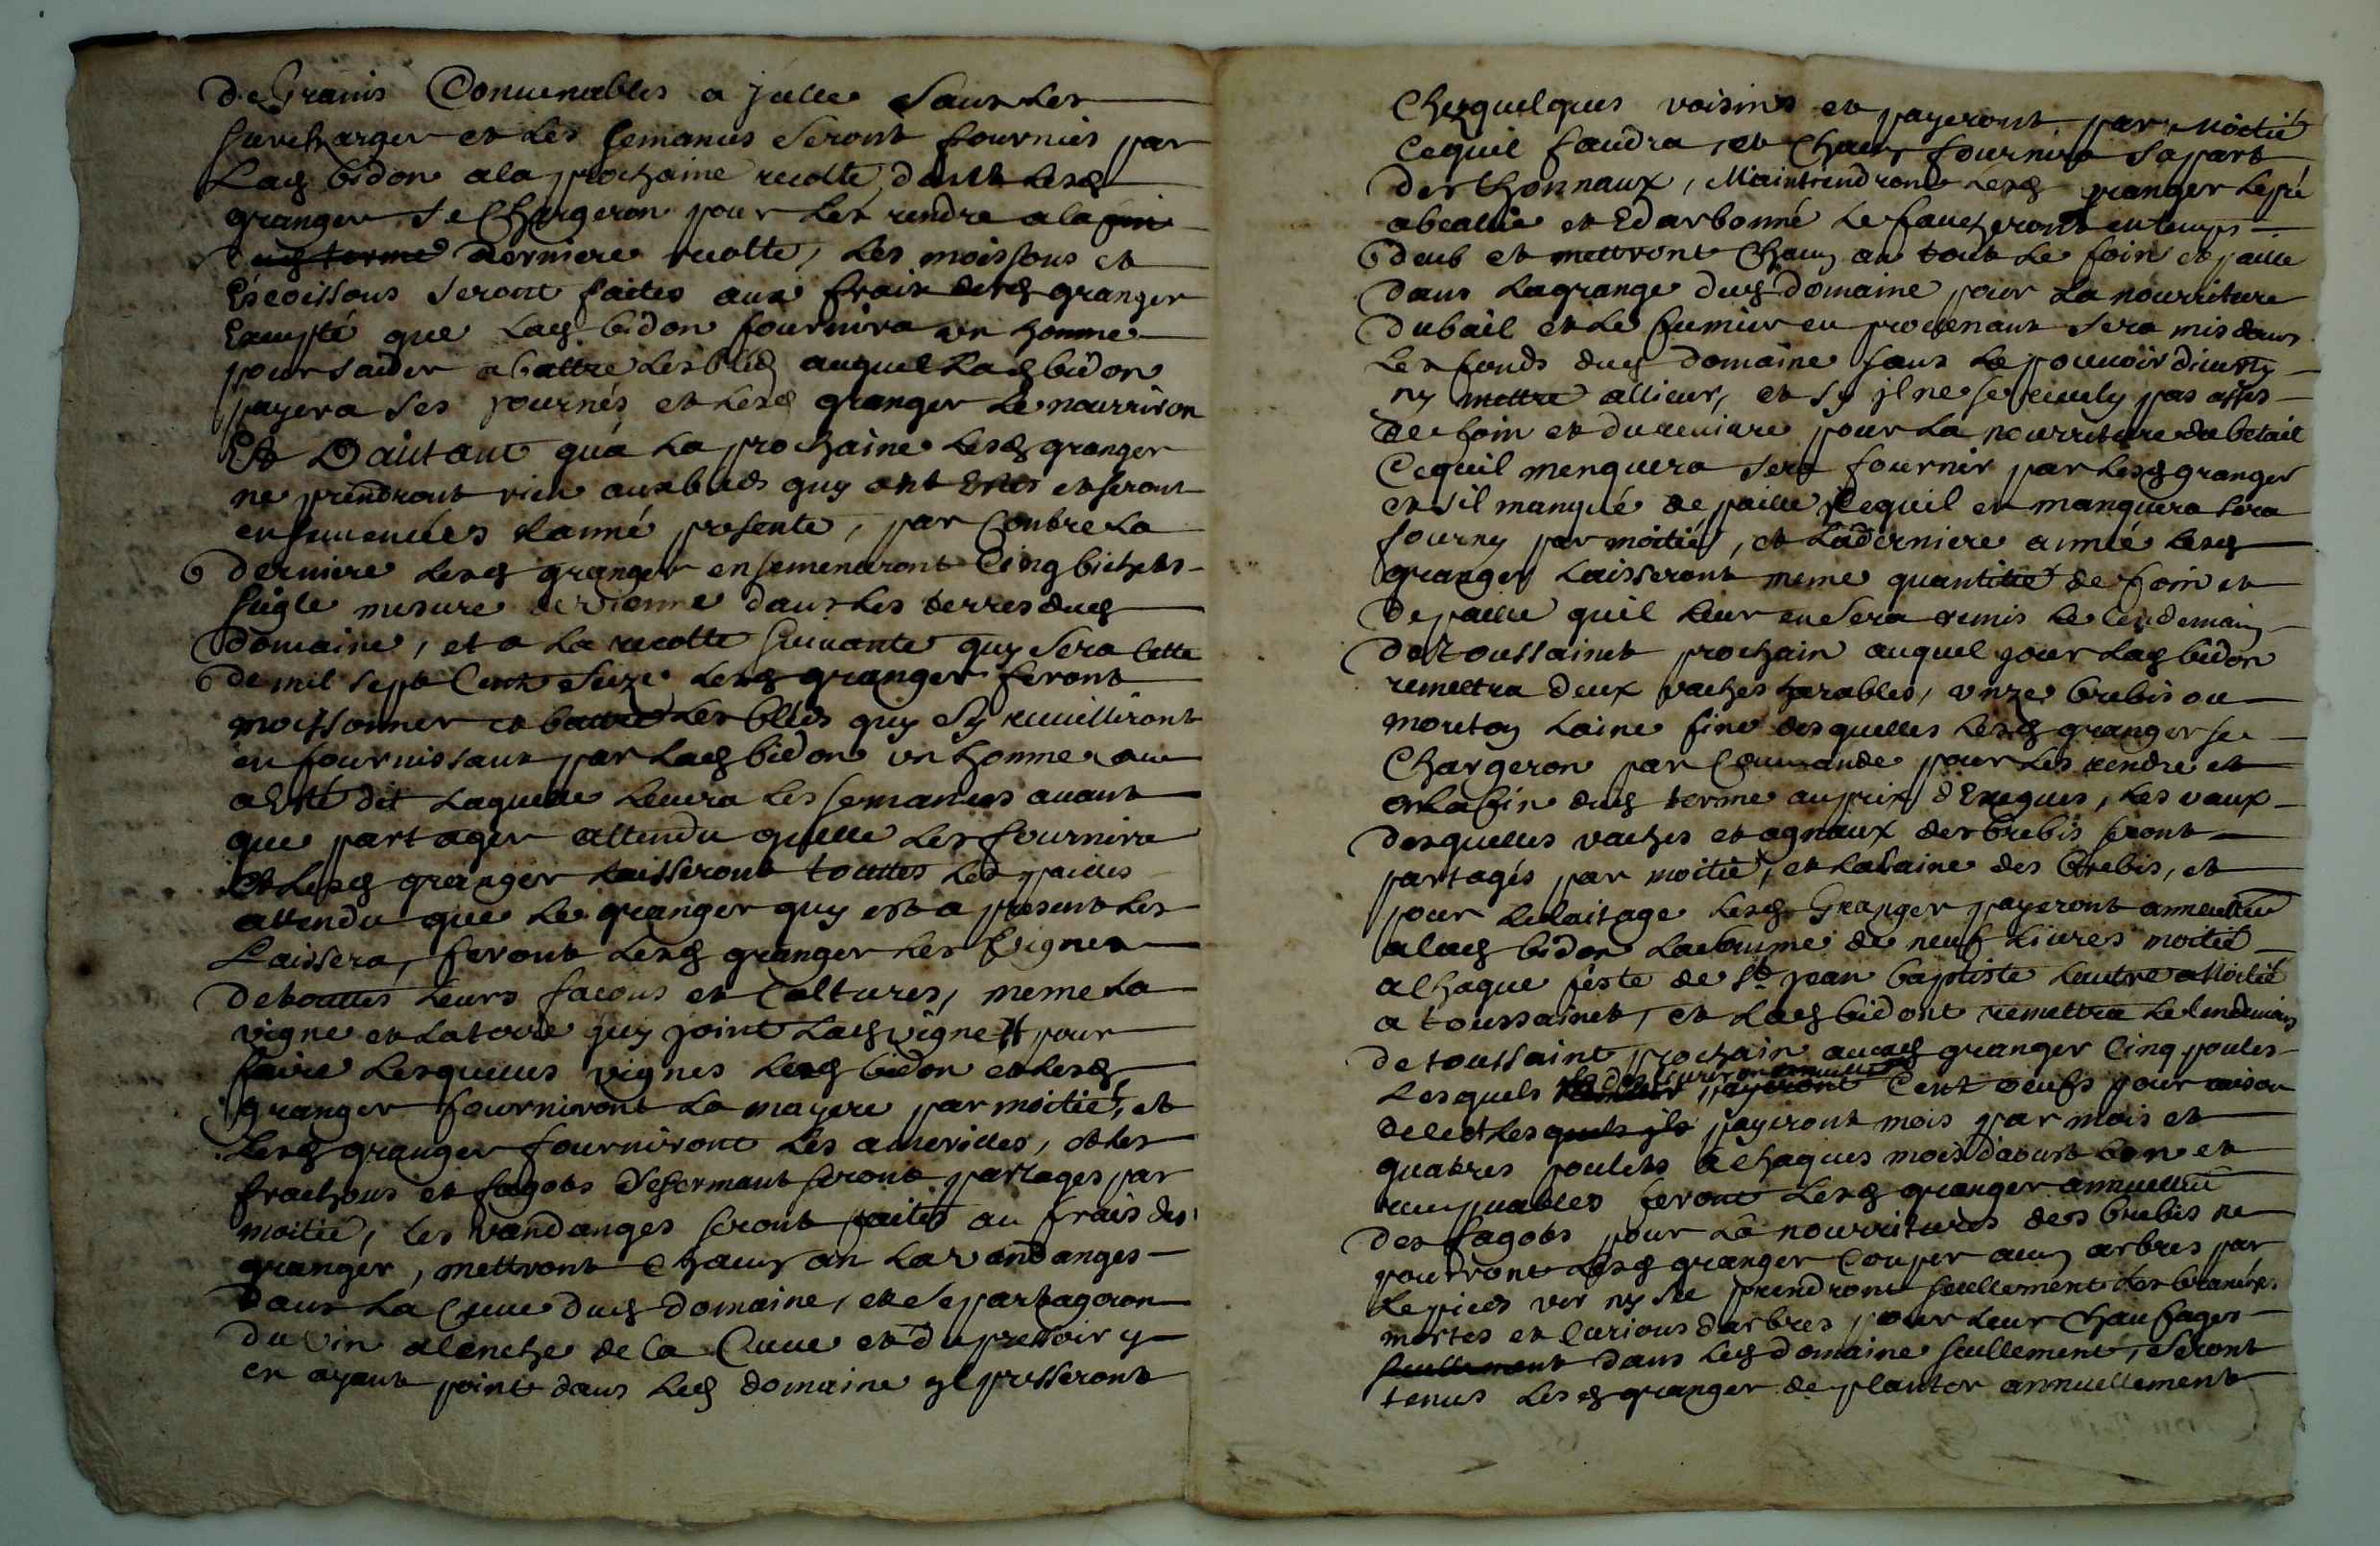 de Grains Convenables a jcelle sans les
surcharger et les semances seront fournies par
Lad bidon a la prochaine recolte, dont lesd
granger se Chargeron pour les rendre a la fin
dud terme derniere recolte, Les moissons et
Escoissons seront faites aux frais desd granger
Exepté que Lad bidon fournira un homme
pour saider a battre les bleds auquel Lad bidon
payera ses journés et lesd granger le nourriron
Et Dautant qua la prochaine lesd granger
ne prendront rien aux bleds quy ont Estes et seront
ensemencées Lanné presente, par Contre La
derniere lesd granger ensemenceront Cinq bichets
seigle mesure de vienne dans les terres dud
domaine, et a la recolte suivante quy sera Cette
de mil sept Cent seize lesd granger feront
moissonner et battre les bleds quy sy receuilliront
en fournissant par Lad bidon un homme comme
a Esté dit Laquelle levera les semances avant
que partager attendu quelle les fournira
Et lesd granger laisseront touttes les pailles
attendu que le granger quy est a present les
Laissera, feront lesd granger les Vignes
de touttes leurs façons et Cultures, meme la
vigne et la terre quy joint Lad vigne pour
faire lesquelles vignes Lad bidon et lesd
granger fourniront la mayere par moitié, et
lesd granger fourniront les amerines, et les
fraichous et fagots de serment seront partages par
moitié, les vandanges seront faites au frais des
granger, mettront Chacun an la vandanges
dans la Cuve dud domaine, et se partageron
du Vin a lanche de la Cuve et du pressoir y
en ayant point dans led domaine jl presseront
Chez quelques voisins et payeront par Moitié
Cequil faudra, et Chacun fournira sa part
des thonnaux, Maintiendront lesd granger le pré
abealié et Edarbonné le faucheront en temps
deub et mettront Chacun an tout le foin et paille
dans la grange dud domaine pour La nourriture
du bail et le fumier en provenant sera mis dans
les fonds dud domaine sans le pouvoir divertir
ny mettre allieur, et sy jl ne se receuly pas asses
de foin et du reviure pour la nourriture du betail
Cequil menquera sera fournir par lesd granger
et sil manque de paille Cequil en manquera sera
fourny par moitié, et La derniere année lesd
granger laisseront meme quantitté de foin et
de paille quil leur en sera remis le lendemain
de toussainct prochain auquel jour Lad bidon
remettra deux vaches arables, onze brebis ou
mouton laine fine desquelles lesd granger se
Chargeron par Commande pour les rendre et
a la fin dud terme au prix dExegues, les vaux
desquelles vaches et agnaux des brebis seront
partagés par moitié, et la laine des Brebis, et
pour le laitage lesd Granger payeront annuellemt
a lad bidon la somme de neuf livres moitié
a Chaque feste de St jean baptiste lautre a Moitié
a toussainct, et Lad bidont remettra le lendemain
de toussaint prochain auxd granger Cinq poules
Lesquels payeront Cent oeufs pour raison
dicelles quels jls payeront mois par mois et
quatres poulets a Chaques mois daoust bon et
recepvables feront lesd granger annuellemt
des fagots pour la nourritures des brebis ne
pourront lesd granger Couper aucun arbres par
le pied vif ny sec prendront seullement les branches
mortes et Curions darbres pour leur Chaufages
seullement dans led domaine seullement, seront
tenus lesd granger de planter annuellement